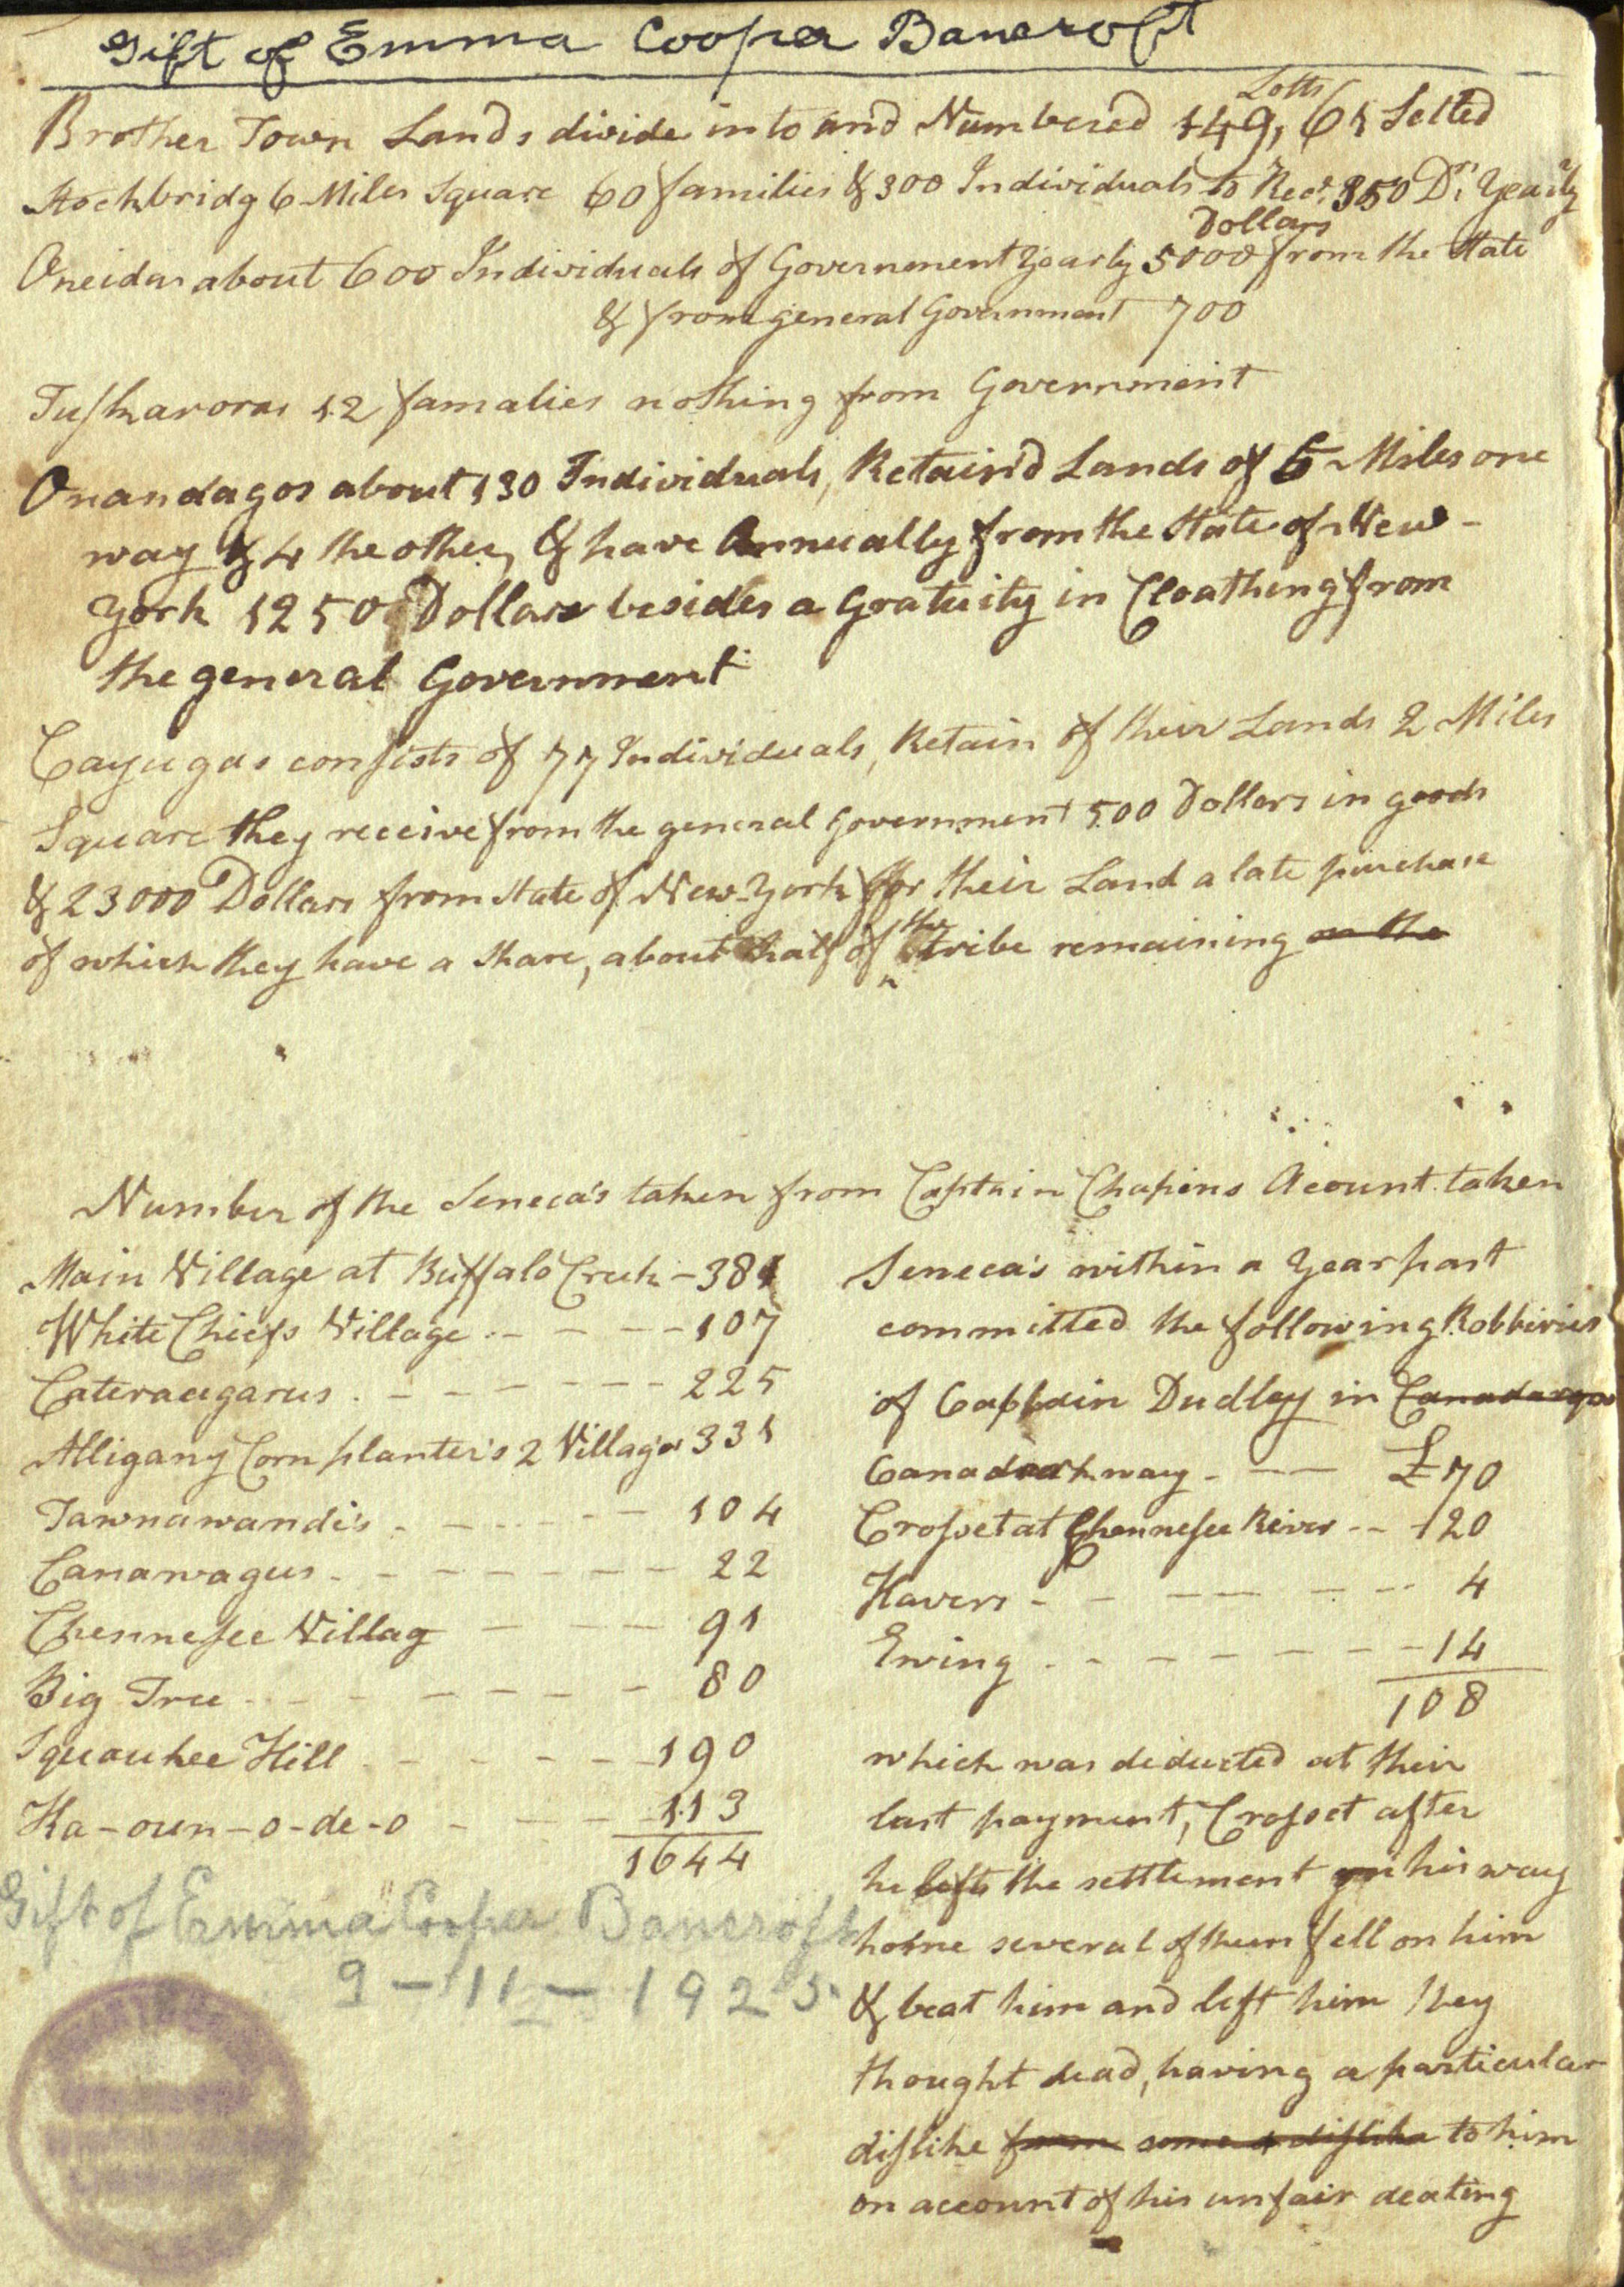 Gift of Emma Cooper Bancroft
Lotts
Brother Town Lands divide into and Numbered 149, 61 Setted
Stockbridg 6 Miles Square 60 families & 300 Individuals to Recv. 350 Drs. Yearly
Dollars
Oneidas about 600 Individuals of Government Yearly 5000 from the State
& from general Government 700
Tuskaroras 12 famalies nothing from Government
Onandagos about 130 Individuals, Retain'd Lands of 6 Miles one
way & 4 the other, & have Annually from the State of New-
York 1250 Dollars besides a Gratuity in Cloathing from
the general Government
Cayugas consists of 77 Individuals, Retain of their Lands 2 Miles
Square they receive from the general Government 500 Dollars in goods
& 23000 Dollars from State of New-York for their Land a late purchase
of which they have a Share, about half of the tribe remaining on the
Number of the Seneca's taken from Captain Chapins Acount taken
Main Village at Buffalo Creek - 381
White Chiefs Village - - - - 107
Cateraugarus - - - - - - - 225
Alligany Corn planter's 2 Villages 331
Tawnawandi's - - - - - - 104
Canawagus - - - - - - - 22
Chennesee Villag - - - - 91
Big Tree - - - - - - - 80
Squaukee Hill - - - - - 190
Ka-oun-o-de-o - - - - 113
1644
Gift of Emma Cooper Bancroft
9-11-1925
Seneca's within a Year past
committed the following Robberies
of Captain Dudley in Canadarqua
Canadarkway - - - £70
Crosset at Chennesee River - - 120
Havens - - - - - - 4
Ewing - - - - - - - 14
108
which was deducted at their
last payment, Crosset after
he left the settlement on his way
home several of them fell on him
& beat him and left him they
thought dead, having a particular
dislike from some dislike to him
on account of his unfair dealing